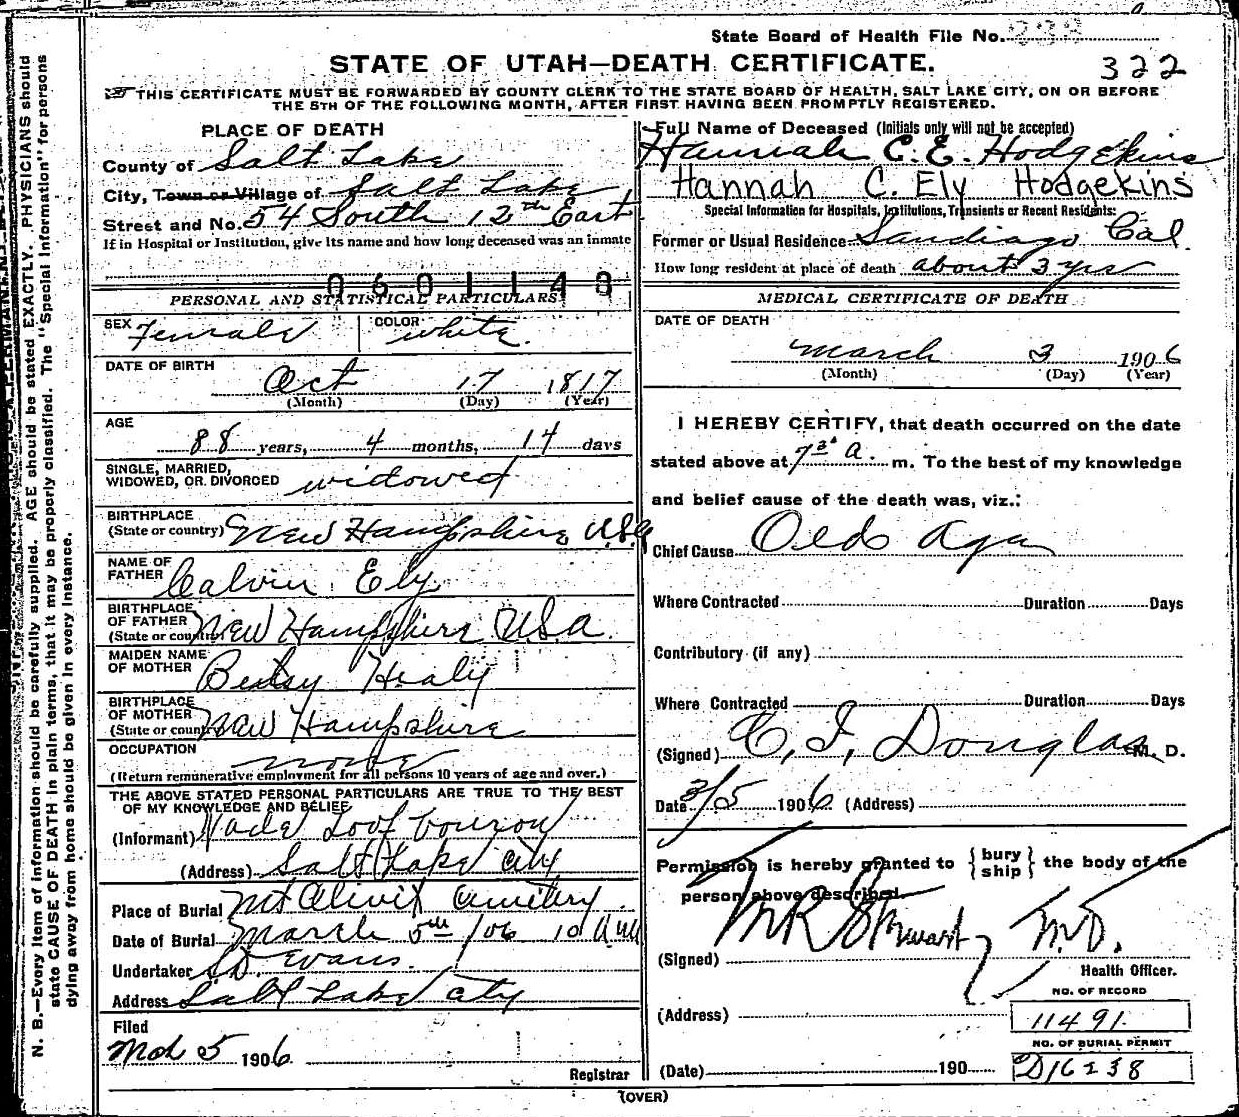 State Board of Health File No. 233
STATE OF UTAH—DEATH CERTIFICATE.
322
THIS CERTIFICATE MUST BE FORWARDED BY COUNTY CLERK TO THE STATE BOARD OF HEALTH, SALT LAKE CITY, ON OR BEFORE
THE 5TH OF THE FOLLOWING MONTH, AFTER FIRST HAVING BEEN PROMPTLY REGISTERED.
N. B.—Every item of information should be carefully supplied. AGE should be stated EXACTLY. PHYSICIANS should
state CAUSE OF DEATH in plain terms, that it may be properly classified. The "Special Information" for persons
dying away from home should be given in every instance.
PLACE OF DEATH
County of Salt Lake
City, Town or Village of Salt Lake,
Street and No. 54 South 12th East
If in Hospital or Institution, give its name and how long deceased was an inmate
0601143
PERSONAL AND STATISTICAL PARTICULARS
SEX Female COLOR white.
DATE OF BIRTH
Oct 17 1817
(Month) (Day) (Year)
AGE
88 years, 4 months, 14 days
SINGLE, MARRIED,
WIDOWED, OR DIVORCED widowed
BIRTHPLACE
(State or country) New Hampshire U.S.A
NAME OF
FATHER Calvin Ely
BIRTHPLACE
OF FATHER
(State or country) New Hampshire U.S.A.
MAIDEN NAME
OF MOTHER Betsy Healy
BIRTHPLACE
OF MOTHER
(State or country) New Hampshire
OCCUPATION
none
(Return remunerative employment for all persons 10 years of age and over.)
THE ABOVE STATED PERSONAL PARTICULARS ARE TRUE TO THE BEST
OF MY KNOWLEDGE AND BELIEF
(Informant) Wade Loofbourow
(Address) Salt Lake City
Place of Burial Mt Olivet Cemetery.
Date of Burial March 5th /06 10 A.M
Undertaker S.D. Evans.
Address Salt Lake City
Filed
Mch 5 1906
Registrar
(OVER)
Full Name of Deceased (Initials only will not be accepted)
Hannah C. E. Hodgekins
Hannah C. Ely Hodgekins
Special Information for Hospitals, Institutions, Transients or Recent Residents:
Former or Usual Residence Sandiago Cal.
How long resident at place of death about 3 yrs
MEDICAL CERTIFICATE OF DEATH
DATE OF DEATH
March 3 1906
(Month) (Day) (Year)
I HEREBY CERTIFY, that death occurred on the date
stated above at 7 30 A. m. To the best of my knowledge
and belief cause of the death was, viz.:
Chief Cause Old Age
Where Contracted Duration Days
Contributory (if any)
Where Contracted Duration Days
(Signed) C. F. Douglas M. D.
Date 3/5 1906 (Address)
Permission is hereby granted to { bury ship } the body of the
person above described.
M R Stewart, M.D.
(Signed)
Health Officer.
NO. OF RECORD
(Address) 11491.
NO. OF BURIAL PERMIT
(Date) 190 D16238